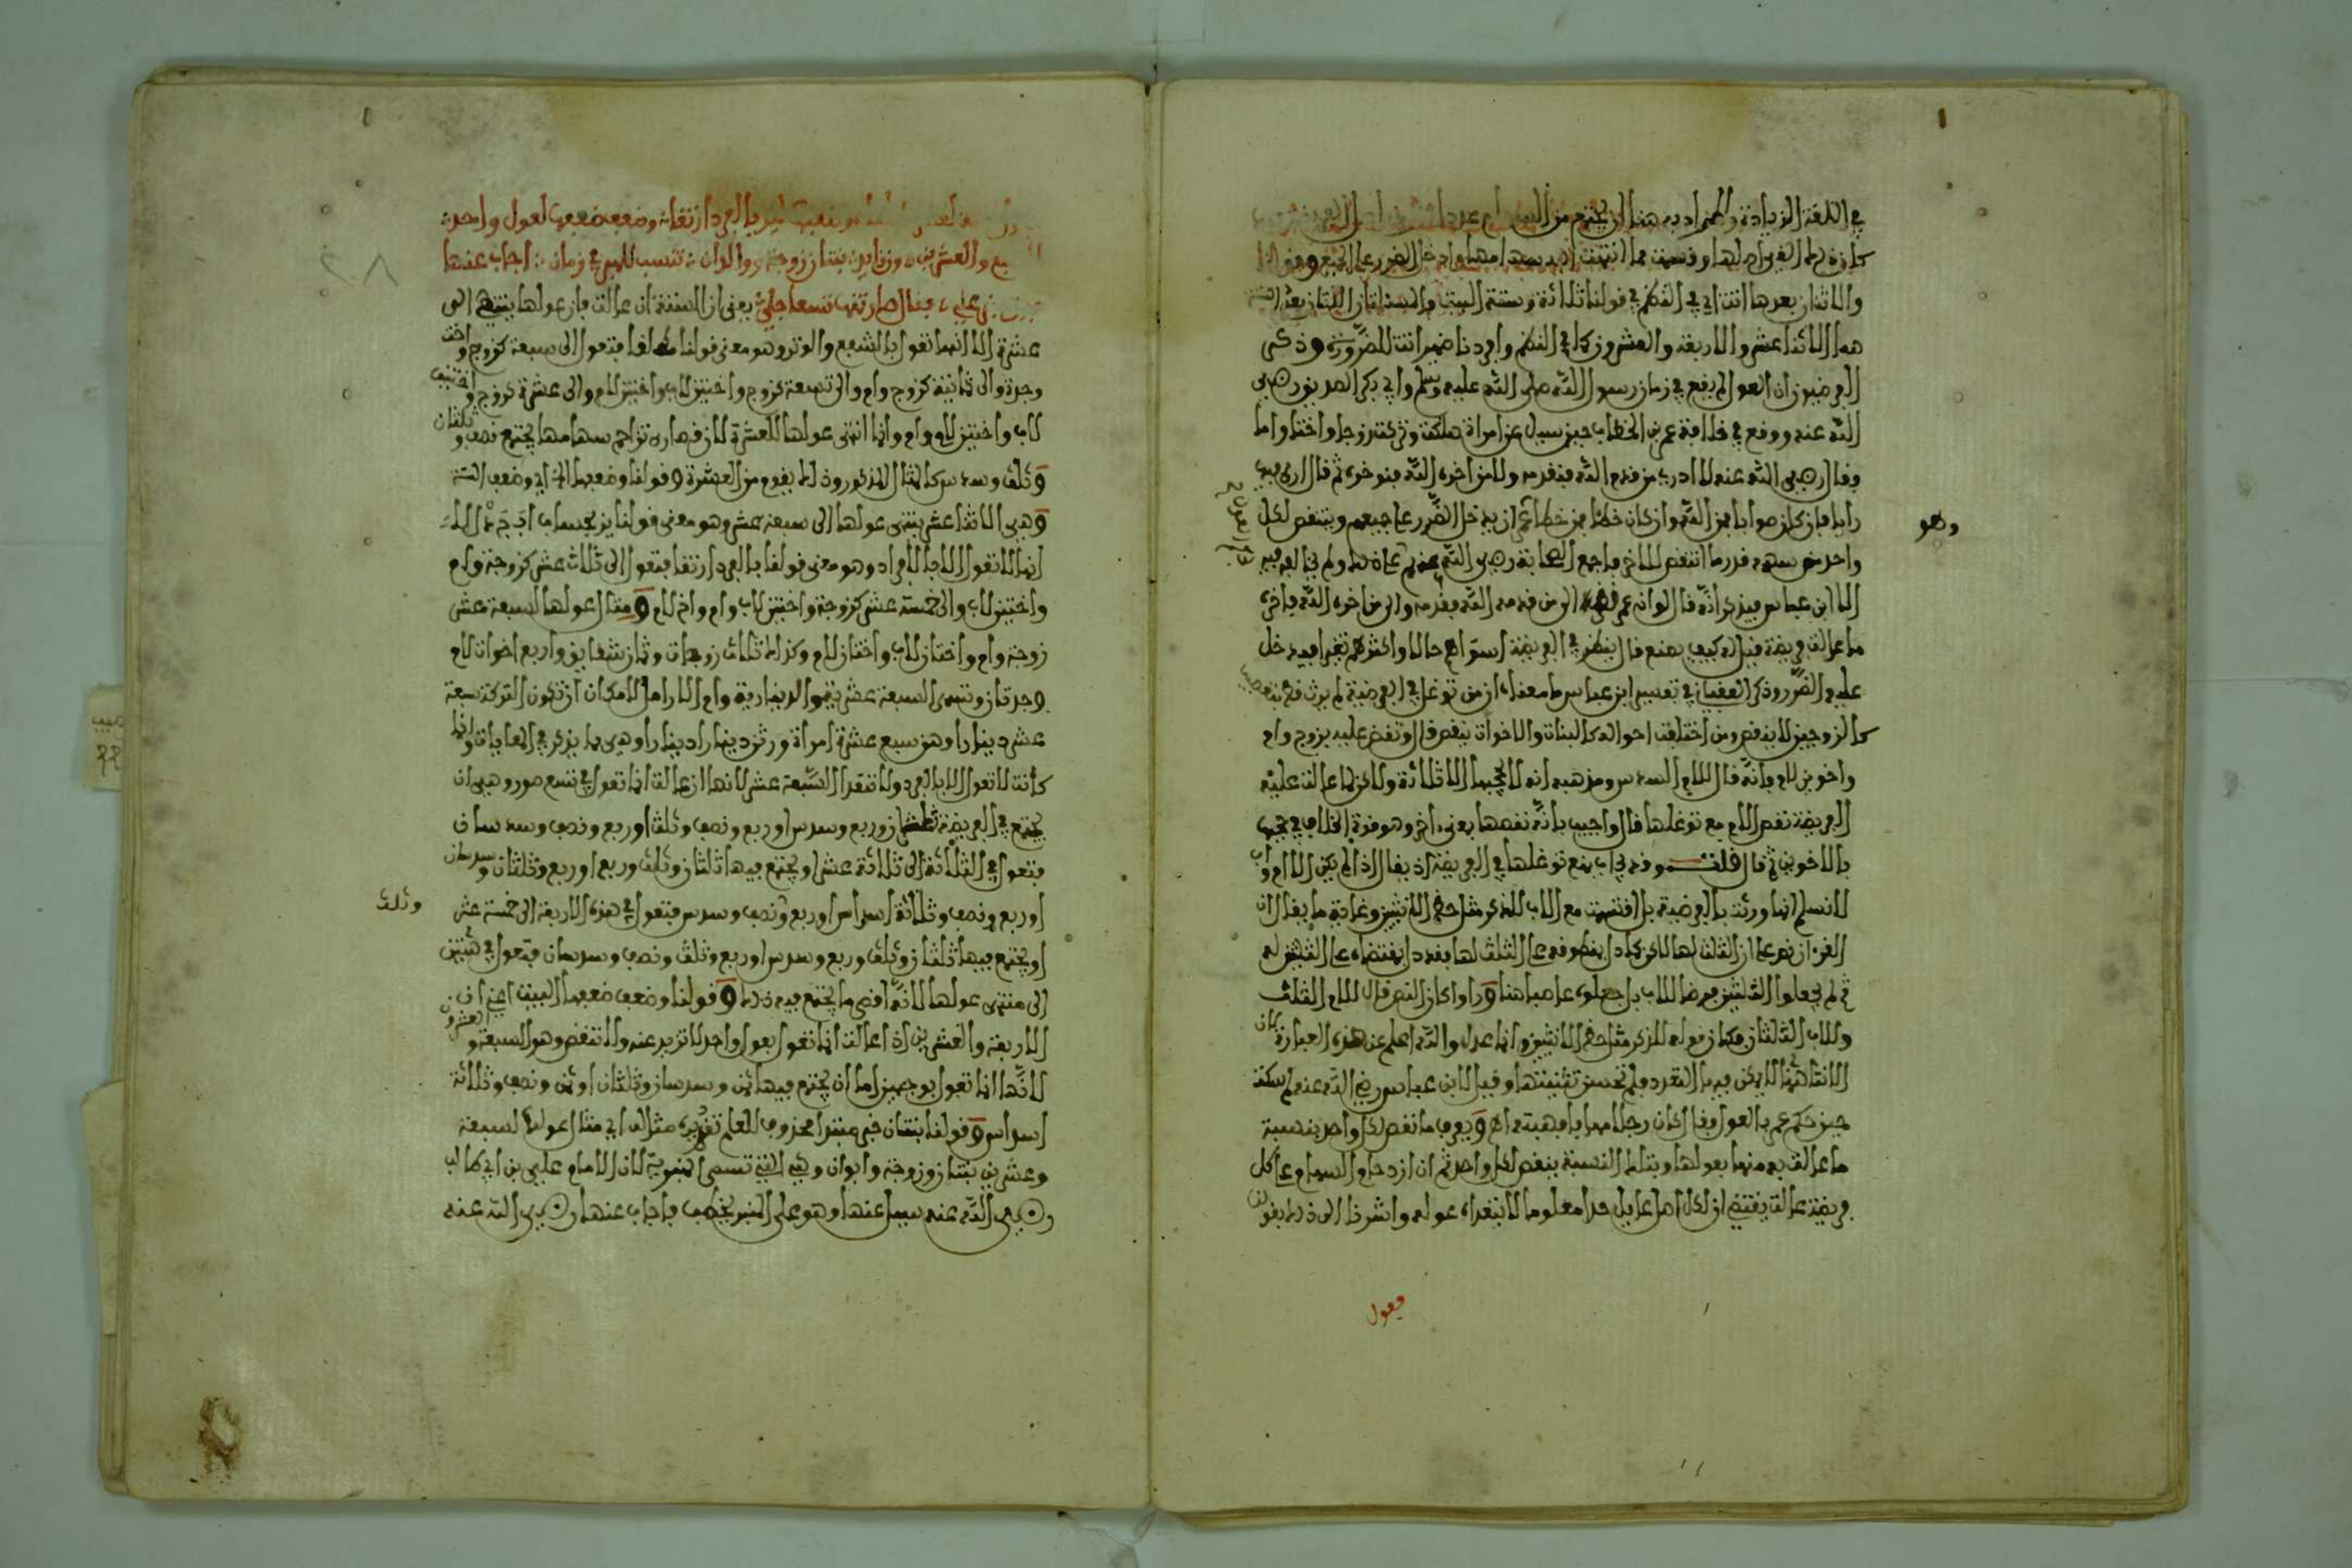 في اللغة الزيادة والمراد به هنا ان يجتمع من السهام عدد
كان ذلك الفريضة اصلها وقسمت مما انتهت اليه سهامها وادخل الضرر على الجميع وقولنا
والاثنان بعدها اثنتا اي في النظم في قولنا ثلاثة وستة البيت والستة
هما الاثنا عشر والاربعة والعشرون كما في النظم وافردنا ضمير اثنتا للضرورة وذكر
الفرضيون ان العول لم يقع في زمان رسول الله صلى الله عليه وسلم وابي بكر الصديق رضي
الله عنه ووقع في خلافة عمر بن الخطاب حين سيل عن امراة هلكت وتركت زوجا واختا واما
وقال رضي الله عنه لا ادري من قدم الله فنقدمه ولا من اخره الله فنوخره ثم قال ارى فيها
رايا فان كان صوابا فمن الله وان كان خطا فمن خطا عمر ان يدخل الضرر على جميعهم وينتقص لكل
واحد من سهمه قدر ما انتقص للاخر فاجمع الصحابة رضي الله عنهم على هذا ولم يخالف فيه
الا ابن عباس فيذكر انه قال لو انه عمر نظر الى من قدمه الله فقدمه والى من اخره الله فاخره
ما عالت فريضة فقيل له كيف يصنع قال ينظر في الفريضة اسوأهم حالا واكثرهم تغيرا فيدخل
عليه الضرر وذكر العقباني في تفسير ابن عباس ما معناه ان من توغل في الفرضية لم يرث
كالزوجين لا ينقص ومن اختلفت احواله كالبنات والاخوات ينقص قال ونقض عليه بزوج وام
واخوين لام فانه قال للام السدس ومذهبه انه لا يحجبها الا ثلاثة ولاكن لما عالت عليه
الفريضة نقص الام مع توغلها قال واجيب بانه نقصها بعنى اخر وهو قوة الخلاف في حجبها
بالاخوين ثم قال قلت وقد يجاب بمنع توغلها في الفريضة اذ يقال اذا لم يكن الا ام واب
لا نسلم انها ورثت بالفرضية بل اقتسمت مع الاب للذكر مثل حظ الانثيين وغاية ما يقال ان
القران نص على ان الثلث لها لاكن كما دل منطوقه على الثلث لها فقد دل بمقتضاه على الثلثين له
ثم لم يجعلوا الثلثين فرضا للاب بل جعلوه عاصبا هنا ورأوا كان النص قال للام الثلث
وللاب الثلثان فكان قوله للذكر مثل حظ الانثيين وانما عدل والله اعلم عن هذه العبارة لان
الانثى هنا لا يمكن فيها التعدد فلم تحسن تثنيتها وقيل لابن عباس رضي الله عنه لم سكت
حين حكم عمر بالعول فقال كان رجلا مهابا فهبته اه ويعرف ما نقص لكل واحد بنسبة
ما عالت به منها بعولها وبتلك النسبة ينقص لكل واحد ثم ان ازدحام السهام على كل
فريضة عالت يقتضي ان لكل اصل عايل حدا معلوما لا يتعداه عوله واشرنا الى ذلك بقولنا
وهو
فعول
وضعف ضعفها لعول واحد
والعشرين وزنا بدت بنتان زوجة والدان تنسب للمنبر في زمان اجاب عنها
علي، مثال صار ثمنها تسعا جلي يعني ان الستة ان عالت فان عولها ينتهي الى
عشرة الا انها تعول بالشفع والوتر وهو معنى قولنا مطلقا فتعول الى سبعة كزوج واخت
وجدة والى ثمانية كزوج وام والى تسعة كزوج واختين لاب واختين لام والى عشرة كزوج واختين
لاب واختين لام وام وانما انتهى عولها للعشرة لان قصارى تزاحم سهامها يجتمع نصف وثلثان
وثلث وسدس كالمثال المذكور وذلك يقوم من العشرة وقولنا وضعفها الخ اي وضعف الستة
وهي الاثنا عشر ينتهي عولها الى سبعة عشر وهو معنى قولنا
انها لا تعول الا بالافراد وهو معنى قولنا بالفرد ارتقا فتعول الى ثلاث عشر كزوجة وام
واختين لاب والى خمسة عشر كزوجة واختين لاب وام واخ لام ومثال عولها لسبعة عشر
زوجة وام واختان لاب واختان لام وكذلك ثلاث زوجات وثمان شقايق واربع اخوات لام
وجدتان وتسمى السبعة عشرية والدينارية وام الارامل لامكان ان تكون التركة سبعة
عشر دينارا وهن سبع عشرة امراة ورثن دينارا دينارا وهي مما يذكر في المعاياة وانما
كانت لا تعول الا بالفرد ولا تتعدا السبعة عشر لانها ان عالت انما تعول في تسع صور وهي ان
يجتمع في الفريضة ثلثان وربع وسدس او ربع ونصف وثلث او ربع ونصف وسدسان
فتعول في الثلاثة الى ثلاثة عشر او يجتمع فيها ثلثان وثلث وربع او ربع وثلثان وسدسان
او ربع ونصف وثلاثة اسداس او ربع ونصف وسدس فتعول في هذه الاربعة الى خمسة عشر
وثلث
او يجتمع فيها ثلثان وثلث وربع وسدس او ربع وثلث ونصف وسدسان فتعول في هتين
الى منتهى عولها لانه اقصى ما يجتمع فيه ذلك وقولنا وضعف ضعفها البيت اعني ان
الاربعة والعشرين اذا عالت انما تعول بعول واحد لا تزيد عنه ولا تنقص وهو السبعة والعشرون
لانها انما تعول بوجهين اما ان يجتمع فيها ثمن وسدسان وثلثان او ثمن ونصف وثلاثة
اسداس وقولنا بنتان خبر مبتدا محذوف للعلم تقديره مثالها اي مثال عولها لسبعة
وعشرين بنتان وزوجة وابوان وهي التي تسمى المنبرية لان الامام علي بن ابي طالب
رضي الله عنه سيل عنها وهو على المنبر يخطب فاجاب عنها رضي الله عنه